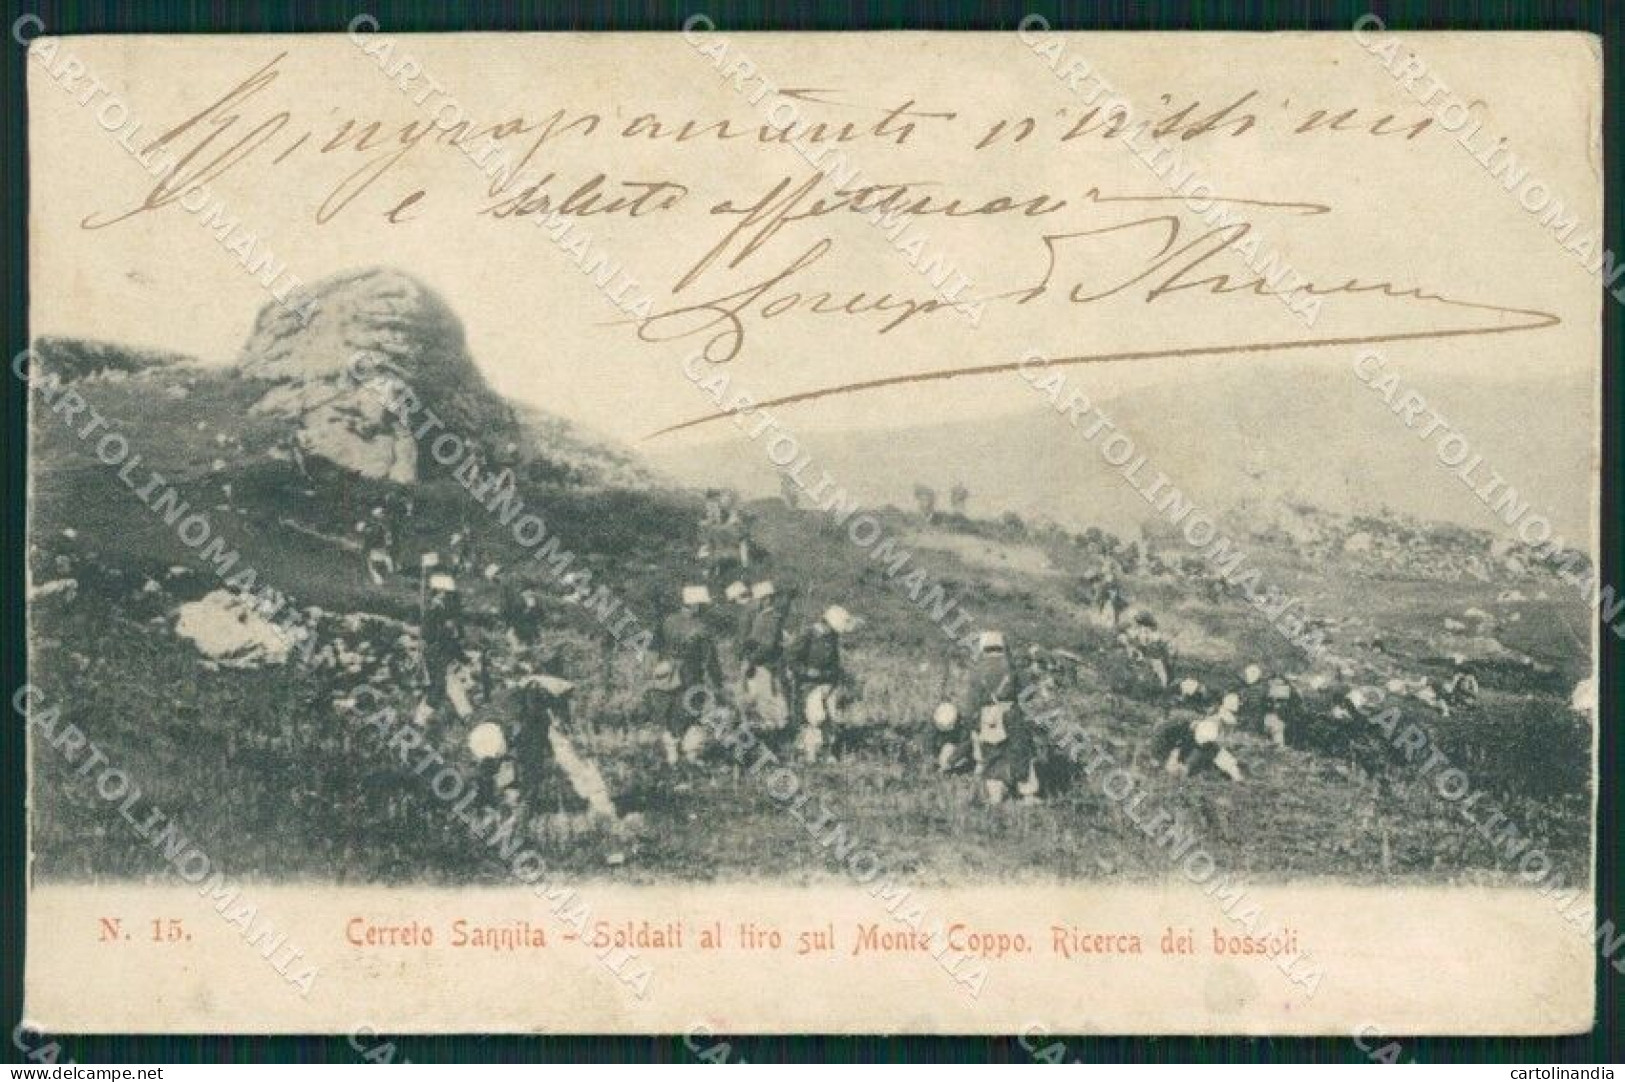 Ringraziamenti vivissimi
e saluti affettuosi
N. 15.
Cerreto Sannita - Soldati al tiro sul Monte Coppo. Ricerca dei bossoli
CARTOLINOMANIA
delcampe.net
cartolinandia